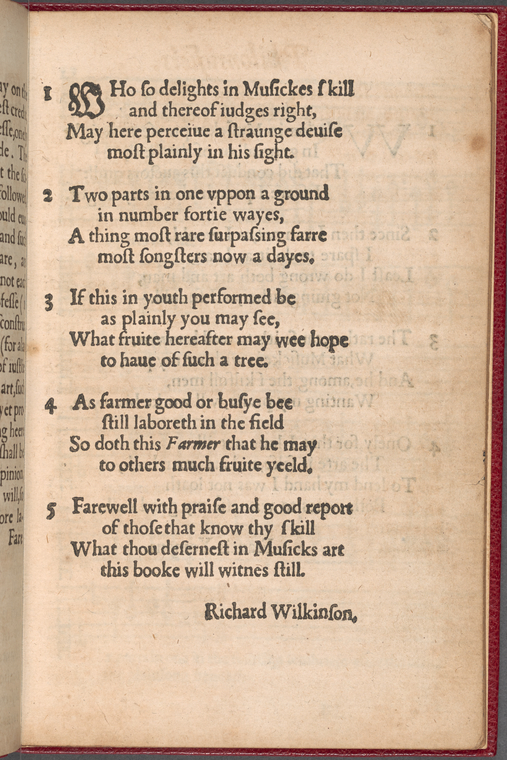 1 WHo ſo delights in Muſickes ſkill
and thereof iudges right,
May here perceiue a ſtraunge deuiſe
moſt plainly in his ſight.
2 Two parts in one vppon a ground
in number fortie wayes,
A thing moſt rare ſurpaſsing farre
moſt ſongſters now a dayes.
3 If this in youth performed be
as plainly you may ſee,
What fruite hereafter may wee hope
to haue of ſuch a tree.
4 As farmer good or buſye bee
ſtill laboreth in the field
So doth this Farmer that he may
to others much fruite yeeld.
5 Farewell with praiſe and good report
of thoſe that know thy ſkill
What thou deſerneſt in Muſicks art
this booke will witnes ſtill.
Richard Wilkinſon.